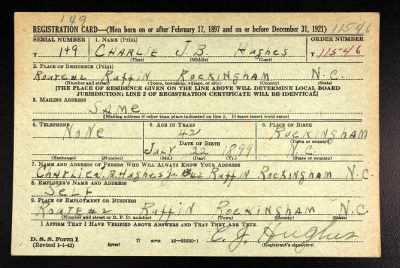 149
REGISTRATION CARD—(Men born on or after February 17, 1897 and on or before December 31, 1921) 11546
SERIAL NUMBER 1. NAME (Print) ORDER NUMBER
T 149 CHARLIE J.B. Hughes T 11546
(First) (Middle) (Last)
2. PLACE OF RESIDENCE (Print)
Route #2 Ruffin Rockingham N.C.
(Number and street) (Town, township, village, or city) (County) (State)
[THE PLACE OF RESIDENCE GIVEN ON THE LINE ABOVE WILL DETERMINE LOCAL BOARD
JURISDICTION; LINE 2 OF REGISTRATION CERTIFICATE WILL BE IDENTICAL]
3. MAILING ADDRESS
SAME
[Mailing address if other than place indicated on line 2. If same insert word same]
4. TELEPHONE 5. AGE IN YEARS 6. PLACE OF BIRTH
NONE 42 Rockingham
DATE OF BIRTH (Town or county)
July 22 1899 N.C.
(Exchange) (Number) (Mo.) (Day) (Yr.) (State or country)
7. NAME AND ADDRESS OF PERSON WHO WILL ALWAYS KNOW YOUR ADDRESS
Ruffin Rockingham N.C.
8. EMPLOYER'S NAME AND ADDRESS
SELF
9. PLACE OF EMPLOYMENT OR BUSINESS
Route #2 Ruffin Rockingham N.C.
(Number and street or R. F. D. number) (Town) (County) (State)
I AFFIRM THAT I HAVE VERIFIED ABOVE ANSWERS AND THAT THEY ARE TRUE.
D. S. S. Form 1
(Revised 1-1-42) C. J. Hughes
(Registrant's signature)